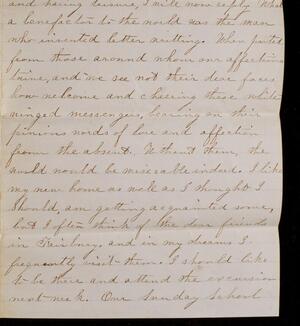 and having leisure, I will now reply. What
a benefactor to the world was the man
who invented letter writing. When parted
from those around whom our affections
twine, and we see not their dear faces
how welcome and cheering these white
winged messenger, bearing on their
pinions words of love and affection
from the absent. Without them, the
world would be miserable indeed. I like
my new home as well as I thought I
should, am getting acquainted some,
but I often think of the dear friends
in and in my dreams I
frequently visit them. I should like
to be there and attend the excursion
next week. Our Sunday School